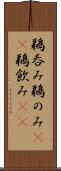 鵜呑み鵜のみ
鵜飲み